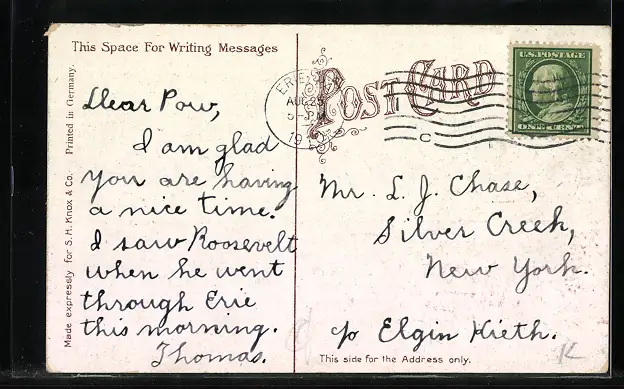 This Space For Writing Messages
POST CARD
ERIE,
AUG 25
5-PM
19
U.S. POSTAGE
ONE CENT
C
Made expressly for S. H. Knox & Co. Printed in Germany.
Dear Pow,
I am glad
you are having
a nice time.
I saw Roosevelt
when he went
through Erie
this morning.
Thomas.
Mr. L. J. Chase,
Silver Creek,
New York.
c/o Elgin Kieth.
This side for the Address only.
K